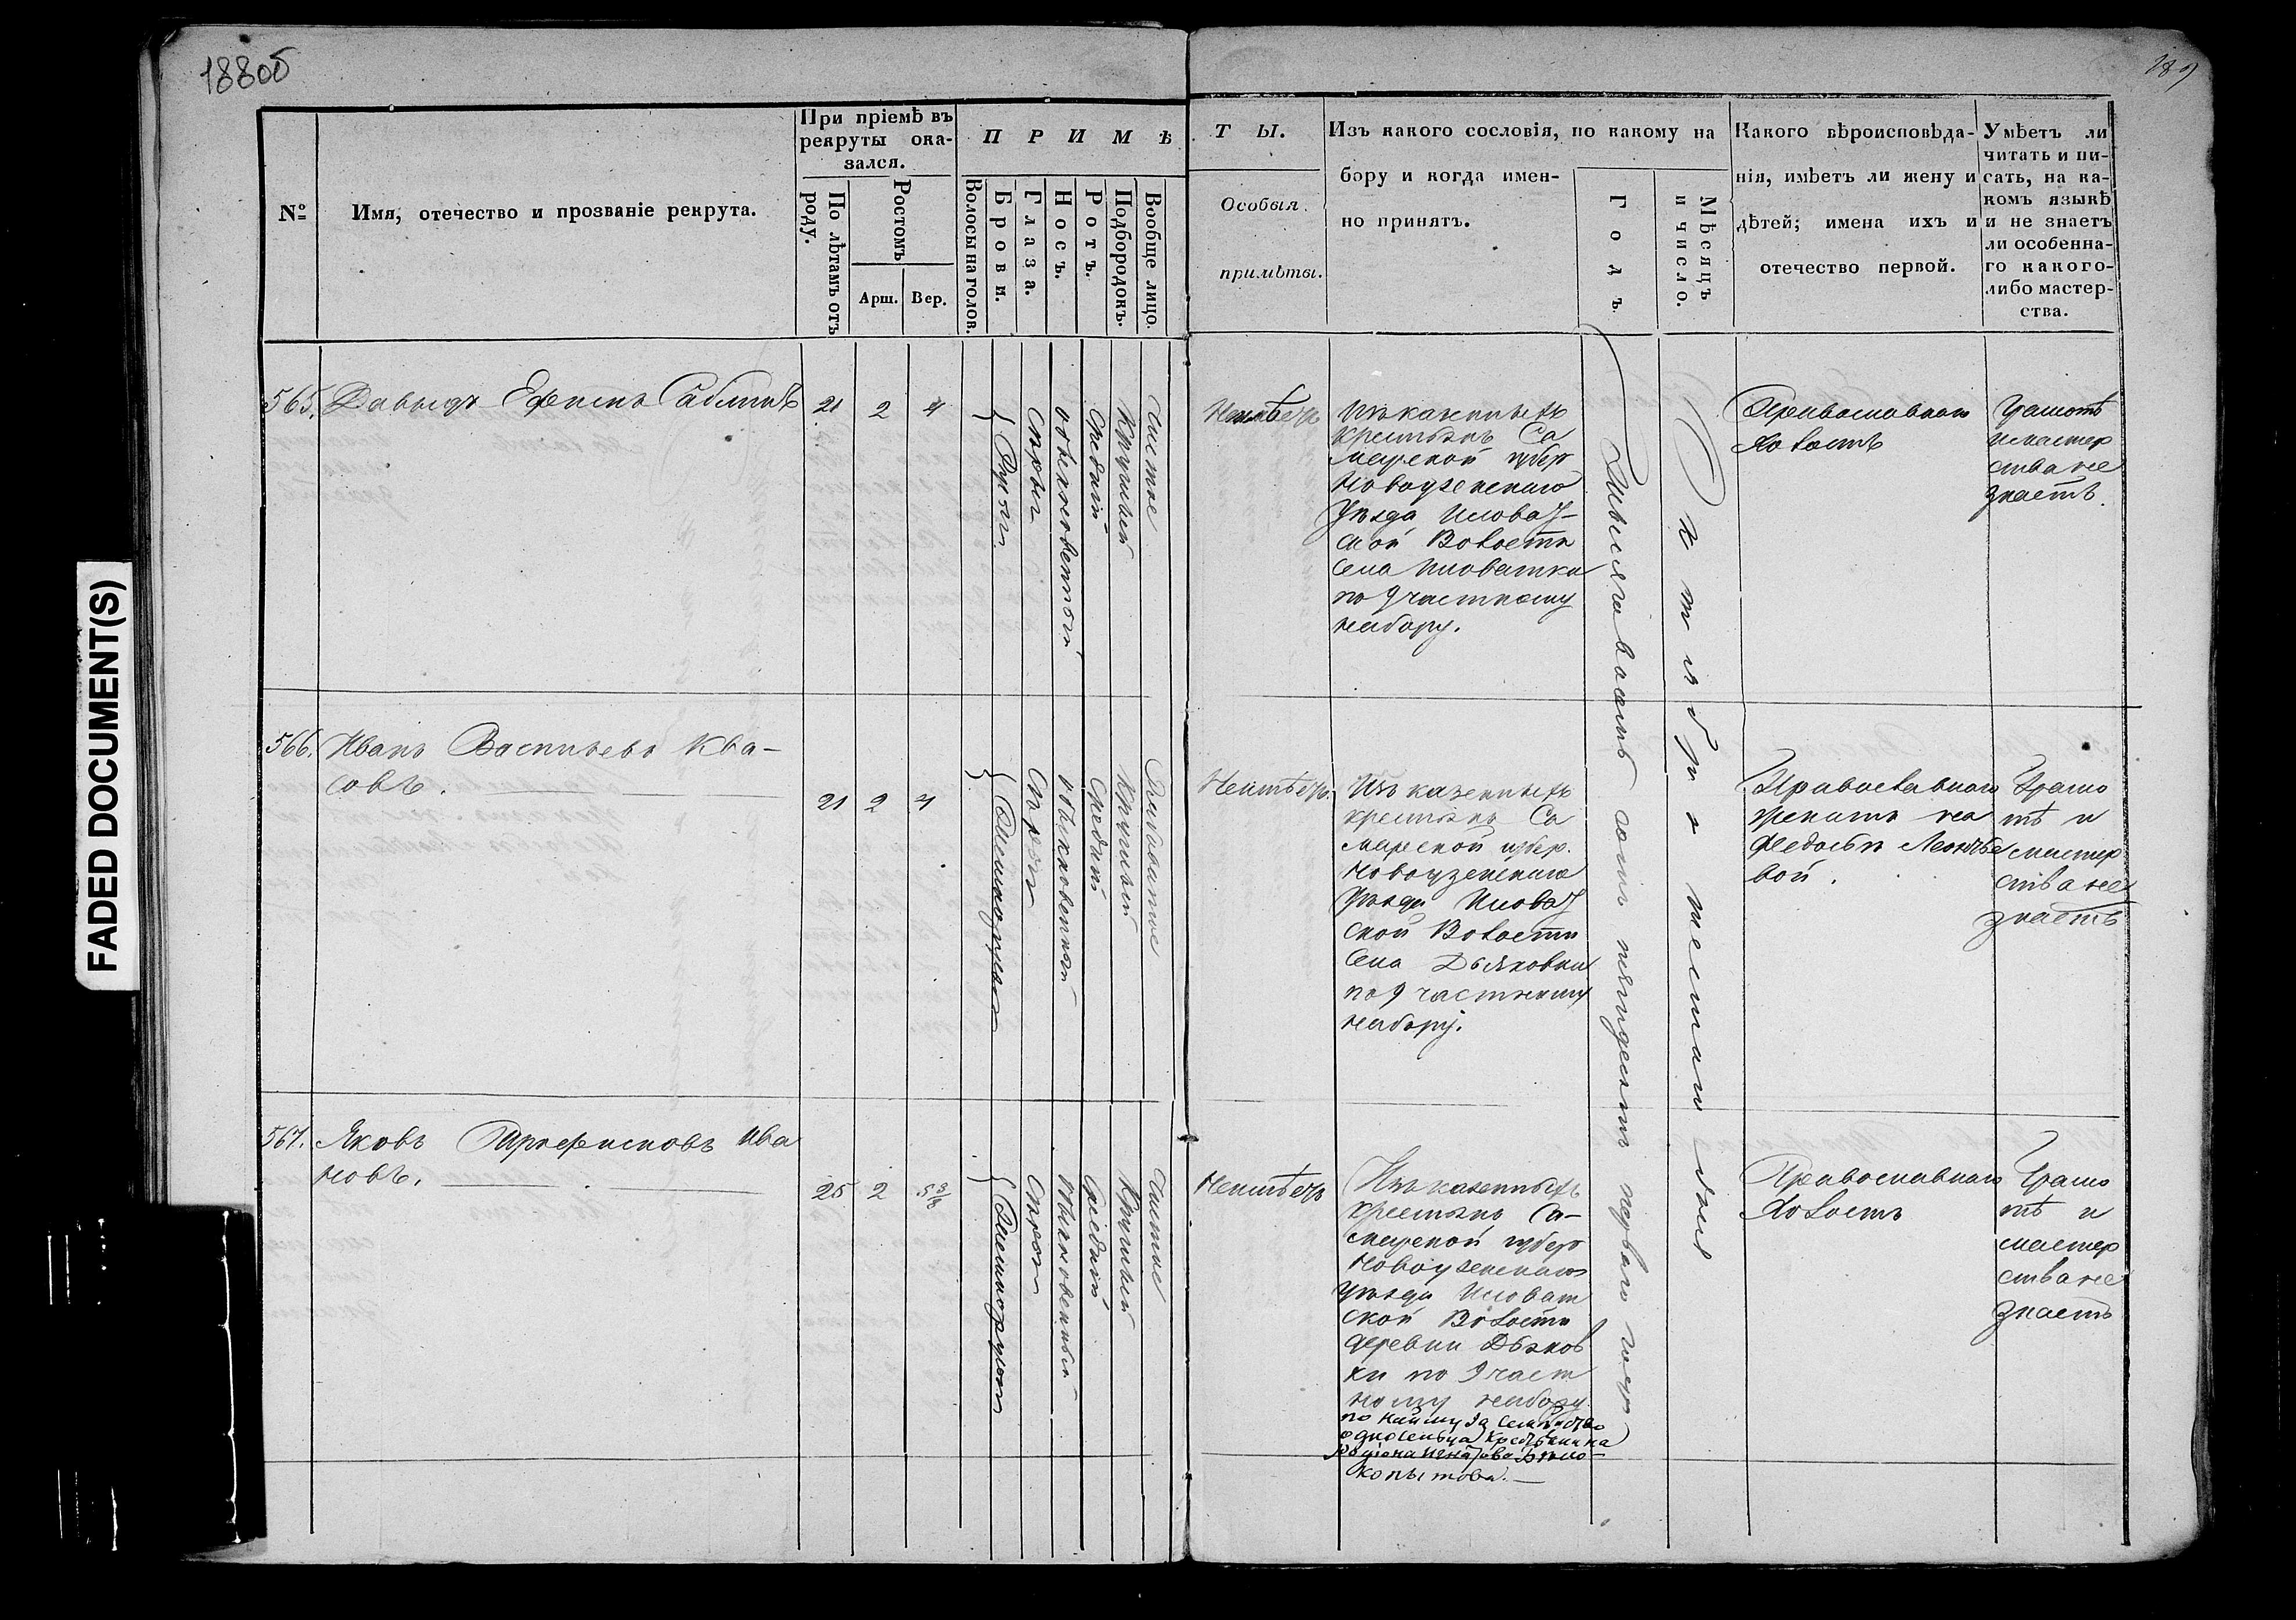 188об
189
FADED DOCUMENT(S)
№
Имя, отечество и прозваніе рекрута.
При пріемѣ въ
рекруты ока-
зался.
По лѣтамъ отъ
роду.
Ростомъ
Арш.
Вер.
ПРИМѢ
Волосы на голов.
Брови.
Глаза.
Носъ.
Ротъ.
Подбородокъ.
Вообще лицо.
ТЫ.
Особыя
примѣты.
Изъ какого сословія, по какому на
бору и когда имен-
но принятъ.
Годъ
Мѣсяцъ
и число.
Какого вѣроисповѣда-
нія, имѣетъ ли жену и
дѣтей; имена ихъ и
отечество первой.
Умѣетъ ли
читать и пи-
сать, на ка-
комъ языкѣ
и не знаетъ
ли особенна-
го какого-
либо мастер-
ства.
565.
Давыдъ Ефимъ
21
2
4
Русыя
Сѣрыя
обыкновенный
Средній
Круглый
Чистое
Неимѣетъ
Изъ казенныхъ
крестьянъ Са
марской губер
Новоузенскаго
Уѣзда Иловат-
ской Волости
села Иловатки
по 9 частному
набору.
Тысяча восемь сотъ пятьдесятъ перваго года
Октября шестаго дня
Православнаго
Холостъ
Грамотѣ
и мастер
ства не
знаетъ.
566.
Иванъ Васильевъ Ква-
совъ.
21
2
4
Темнорусыя
Сѣрыя
обыкновенный
Средній
Круглый
Неимѣетъ.
Изъ казенныхъ
крестьянъ Са
марской губер.
Новоузенскаго
Уѣзда Иловат
ской Волости
села Дьяковки
по 9 частному
набору.
Православнаго
женатъ на
Федосьи Леонтье
вой.
Грамо
тѣ и
мастер
ства не
знаетъ
567.
Яковъ Ива
новъ.
25
2
5
Темнорусыя
Сѣрыя
обыкновенный
Средній
Круглый
Чистое
Неимѣетъ
Изъ казенныхъ
крестьянъ Са-
марской губер
Новоузенскаго
Уѣзда Иловат
ской Волости
деревни Дьяков
ки по 9 част
ному набору
по найму за семейство
односельца крестьянина
Родіона Бѣло-
копытова.
Православнаго
Холостъ
Грамо
тѣ и
мастер
ства не
знаетъ